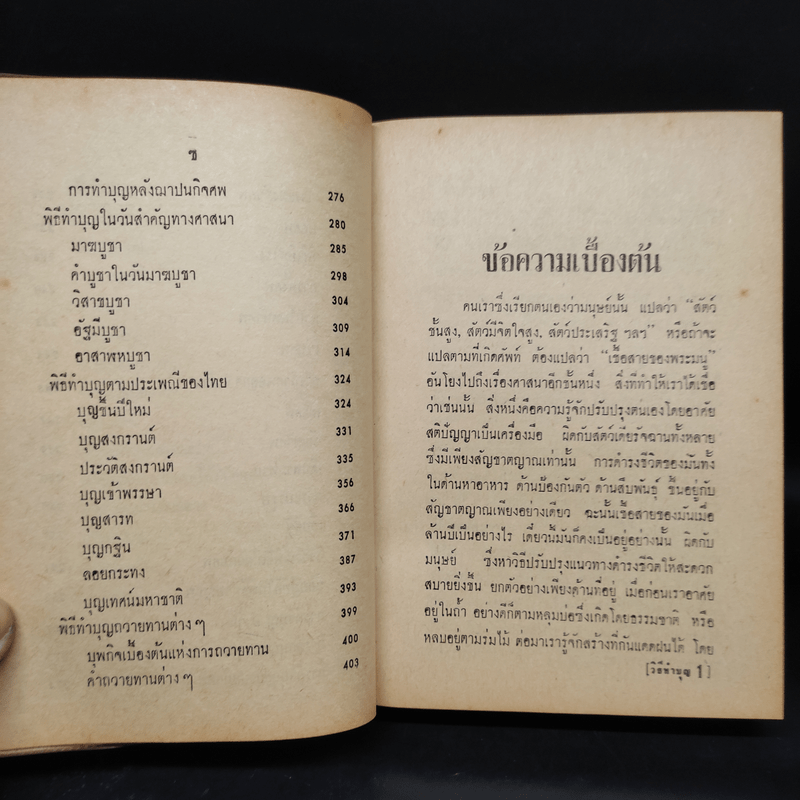 ช
การทำบุญหลังฌาปนกิจศพ 276
พิธีทำบุญในวันสำคัญทางศาสนา 280
มาฆบูชา 285
คำบูชาในวันมาฆบูชา 298
วิสาขบูชา 304
อัฐมีบูชา 309
อาสาฬหบูชา 314
พิธีทำบุญตามประเพณีของไทย 324
บุญขึ้นปีใหม่ 324
บุญสงกรานต์ 331
ประวัติสงกรานต์ 335
บุญเข้าพรรษา 356
บุญสารท 366
บุญกฐิน 371
ลอยกระทง 387
บุญเทศน์มหาชาติ 393
พิธีทำบุญถวายทานต่าง ๆ 399
บุพกิจเบื้องต้นแห่งการถวายทาน 400
คำถวายทานต่าง ๆ 403
ข้อความเบื้องต้น
คนเราซึ่งเรียกตนเองว่ามนุษย์นั้น แปลว่า “สัตว์
ชั้นสูง, สัตว์มีจิตใจสูง, สัตว์ประเสริฐ ฯลฯ” หรือถ้าจะ
แปลตามที่เกิดศัพท์ ต้องแปลว่า “เชื้อสายของพระมนู”
อันโยงไปถึงเรื่องศาสนาอีกชั้นหนึ่ง สิ่งที่ทำให้เราได้เชื่อ
ว่าเช่นนั้น สิ่งหนึ่งคือความรู้จักปรับปรุงตนเองโดยอาศัย
สติปัญญาเป็นเครื่องมือ ผิดกับสัตว์เดียรัจฉานทั้งหลาย
ซึ่งมีเพียงสัญชาตญาณเท่านั้น การดำรงชีวิตของมันทั้ง
ในด้านหาอาหาร ด้านป้องกันตัว ด้านสืบพันธุ์ ขึ้นอยู่กับ
สัญชาตญาณเพียงอย่างเดียว ฉะนั้นเชื้อสายของมันเมื่อ
ล้านปีเป็นอย่างไร เดี๋ยวนี้มันก็คงเป็นอยู่อย่างนั้น ผิดกับ
มนุษย์ ซึ่งหาวิธีปรับปรุงแนวทางดำรงชีวิตให้สะดวก
สบายยิ่งขึ้น ยกตัวอย่างเพียงด้านที่อยู่ เมื่อก่อนเราอาศัย
อยู่ในถ้ำ อย่างดีก็ตามหลุมบ่อซึ่งเกิดโดยธรรมชาติ หรือ
หลบอยู่ตามร่มไม้ ต่อมาเรารู้จักสร้างที่กันแดดฝนได้ โดย
[วิธีทำบุญ 1]